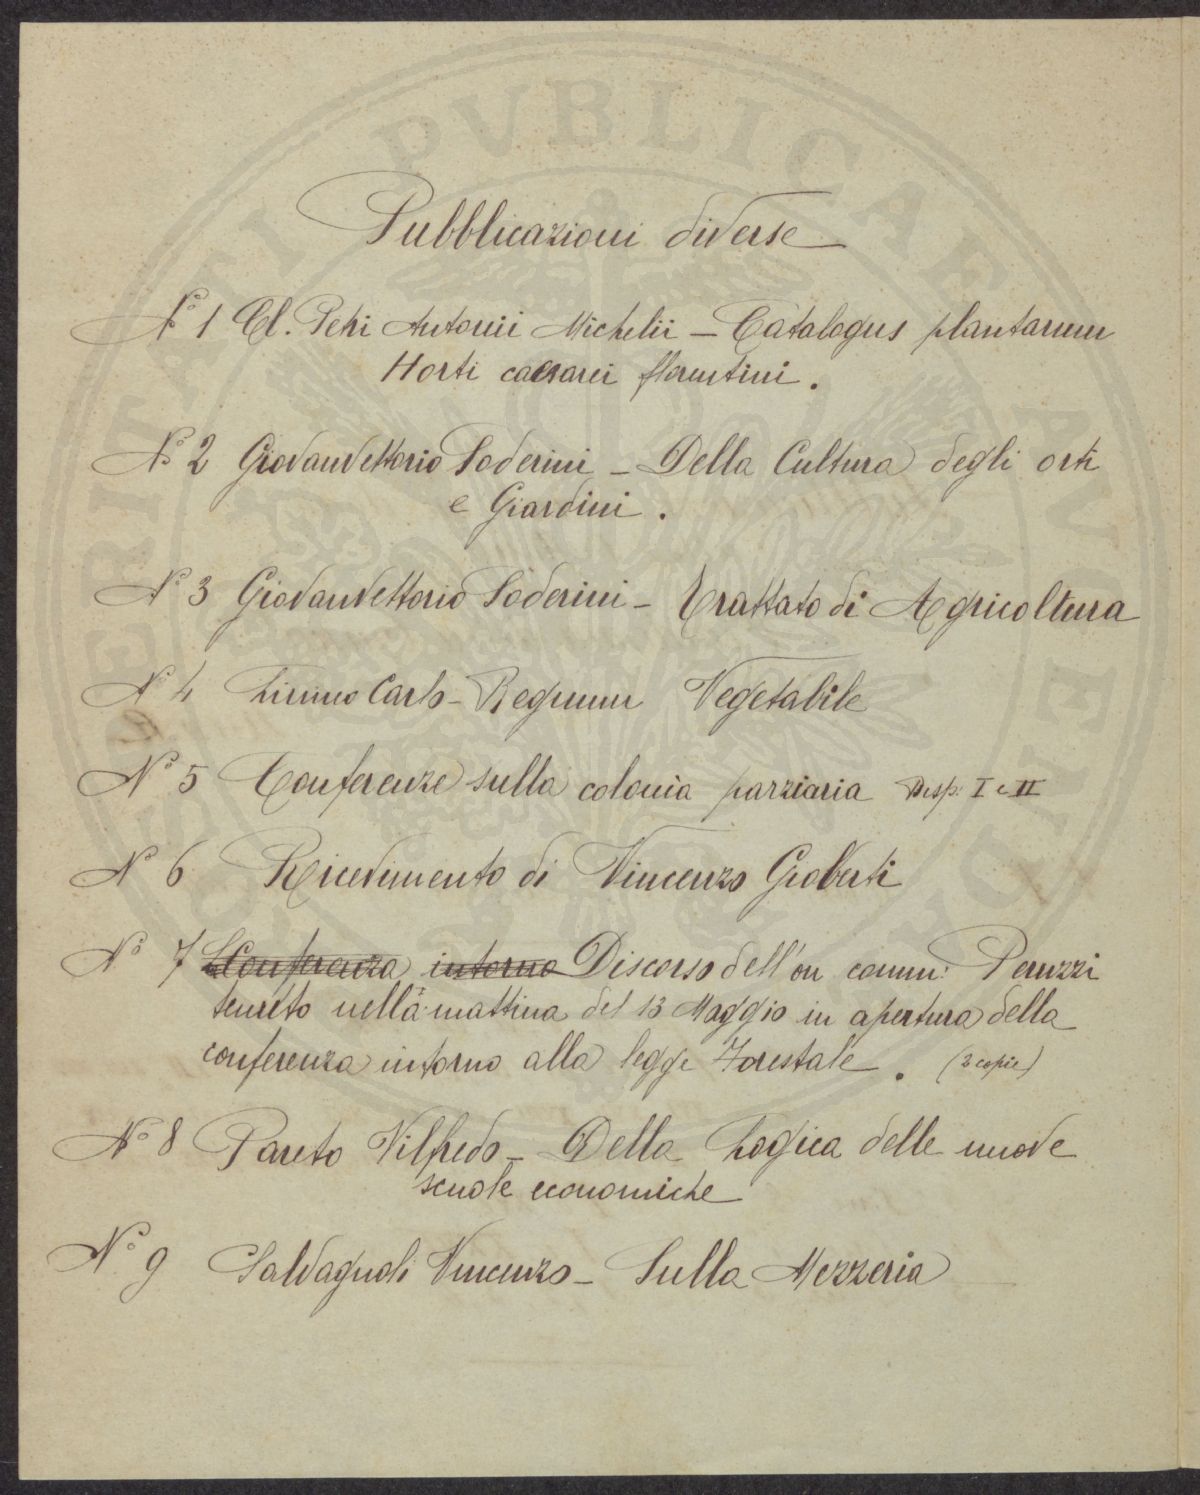 Pubblicazioni diverse
No 1 Cl. Petri Antonii Michelii – Catalogus plantarum
Horti caesarei florentini.
No 2 Giovanvettorio Soderini – Della Cultura degli orti
e Giardini.
No 3 Giovanvettorio Soderini – Trattato di Agricoltura
No 4 Linneo Carlo – Regnum Vegetabile
No 5 Conferenze sulla colonia parziaria Disp: I e II
No 6 Ricevimento di Vincenzo Gioberti
No 7 Conferenza intorno Discorso dell'on comm: Peruzzi
tenuto nella mattina del 13 Maggio in apertura della
conferenza intorno alla legge Forestale. (2 copie)
No 8 Pareto Vilfredo – Della Logica delle nuove
scuole economiche
No 9 Salvagnoli Vincenzo – Sulla Mezzeria